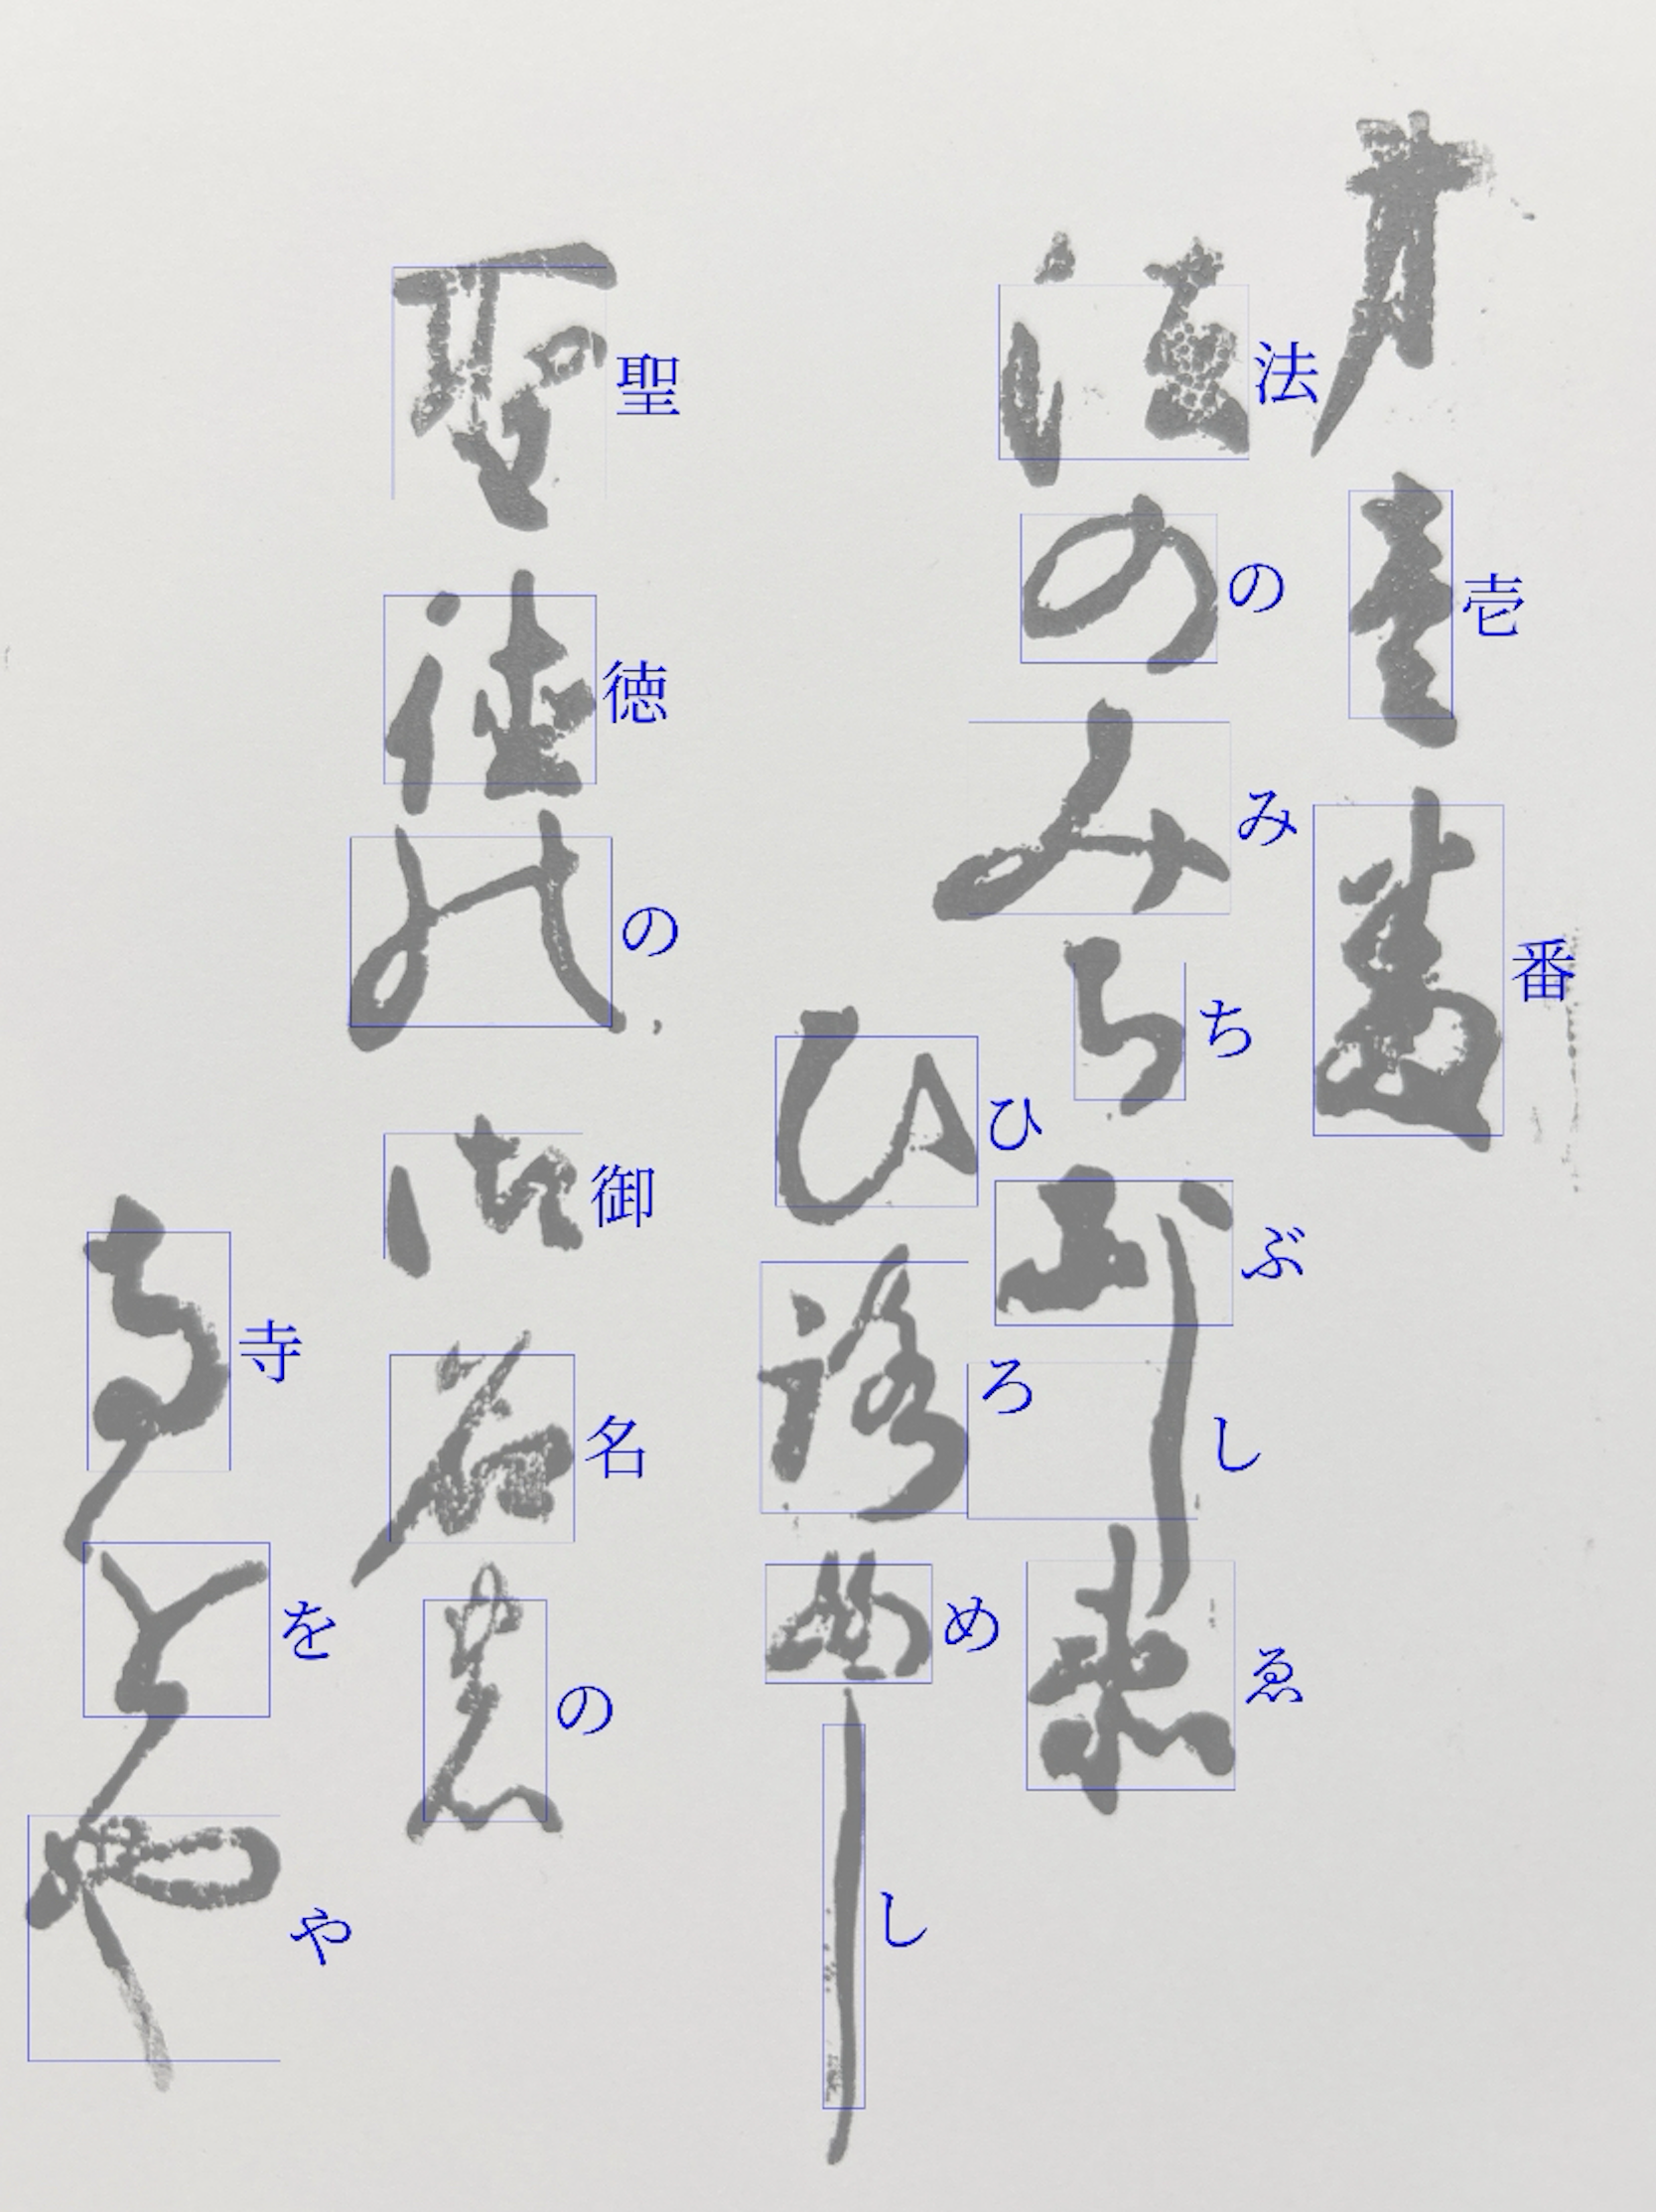 第壱番
法のみちぶしゑ
ひろめし
聖徳の御名の
寺をや